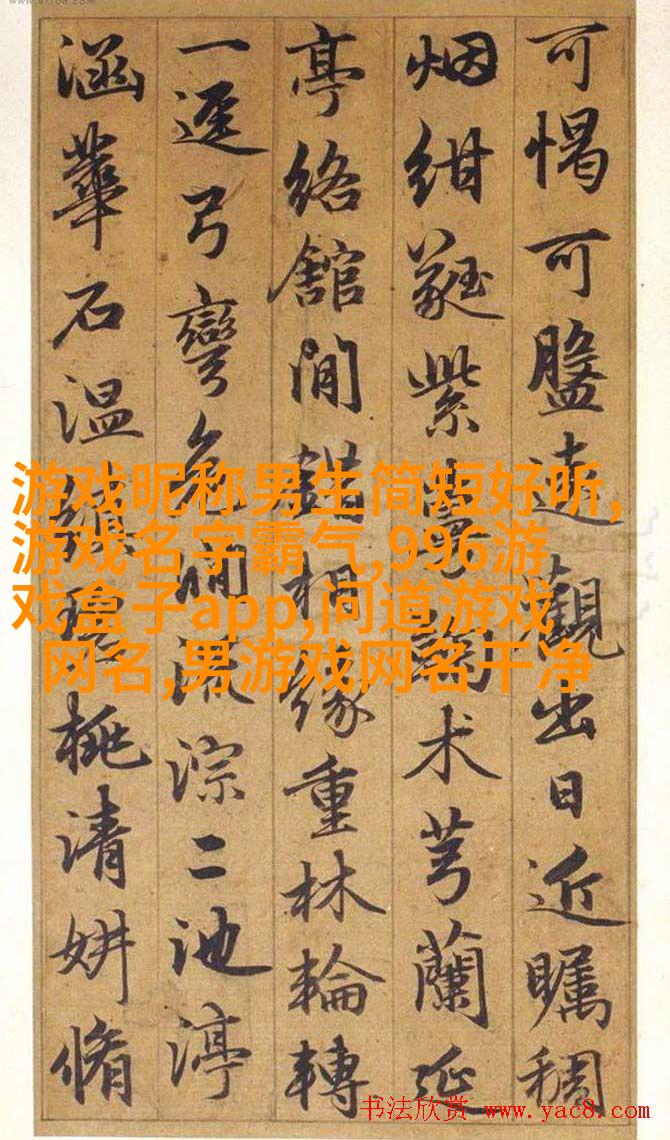 可愒可盤遠觀出日近矚稠
烟紺蕤紫术芎蘭延
亭絡館間錯相緣重林輪轉
一逕弓彎危流淙二池渟
涵華石溫桃清妍脩
游戏昵称男生简短好听,
游戏名字霸气,996游
戏盒子app,问道游戏
网名,男游戏网名干净
书法欣赏 www.yac8.com